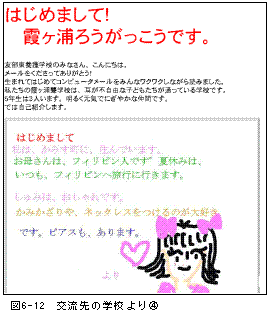 はじめまして!
霞ヶ浦ろうがっこうです。
友部東養護学校のみなさん、こんにちは。
メールをくださってありがとう!
生まれてはじめてコンピュータメールをみんなワクワクしながら読みました。
私たちの霞ヶ浦聾学校は、耳が不自由な子どもたちが通っている学校です。
5年生は3人います。明るく元気でにぎやかな仲間です。
では自己紹介します。
はじめまして
私は、 町に、住んでいます。
お母さんは、フィリピン人です゛夏休みは、
いつも、フィリピンへ旅行に行きます。
しゅみは、おしゃれです。
かみかざりや、ネックレスをつけるのが大好き
です。ピアスも、あります。
より
図6-12 交流先の学校より④